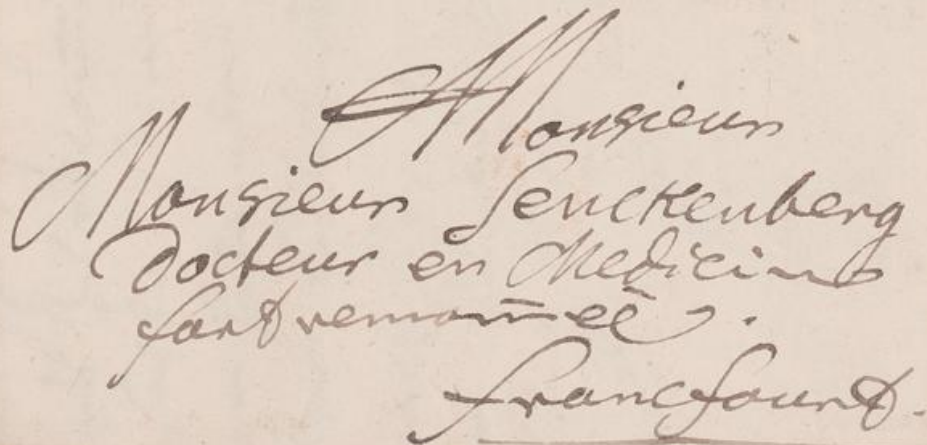 A Monsieur
Monsieur Senckenberg
Docteur en Medicine
fort renom̄eé.
francfourt.